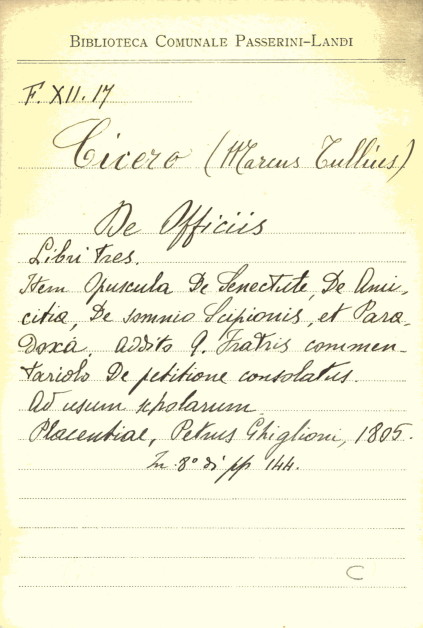 BIBLIOTECA COMUNALE PASSERINI-LANDI
F. XII. 17
Cicero (Marcus Tullius)
De Officiis
Libri tres.
Item Opuscula De Senectute, De Ami-
citia, De somnio Scipionis, et Para-
doxa, addito Q. Fratris commen-
tariolo De petitione consolatus.
Ad usum scholarum.
Placentiae, Petrus Ghiglioni, 1805.
In 8° di pp 144.
C